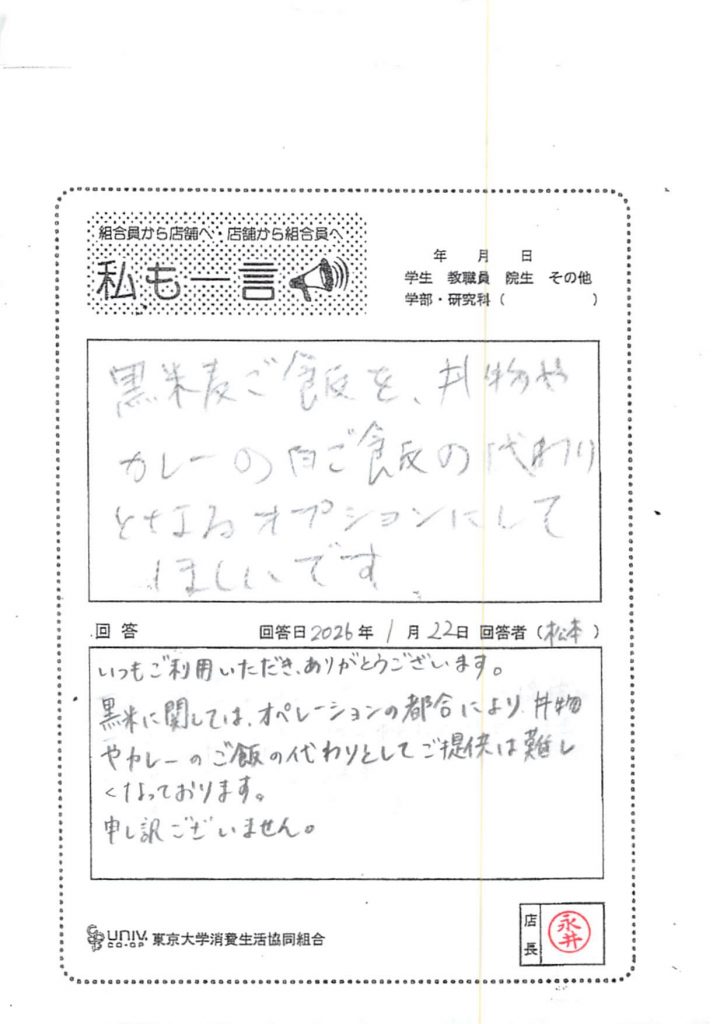 組合員から店舗へ・店舗から組合員へ
私も一言
年 月 日
学生 教職員 院生 その他
学部・研究科( )
黒米麦ご飯を、丼物や
カレーの白ご飯の代わり
となるオプションにして
ほしいです。
回答 回答日2026年 1月22日 回答者(松本)
いつもご利用いただき、ありがとうございます。
黒米に関しては、オペレーションの都合により、丼物
やカレーのご飯の代わりとしてご提供は難し
くなっております。
申し訳ございません。
UNIV.
CO-OP
東京大学消費生活協同組合
店長
永井